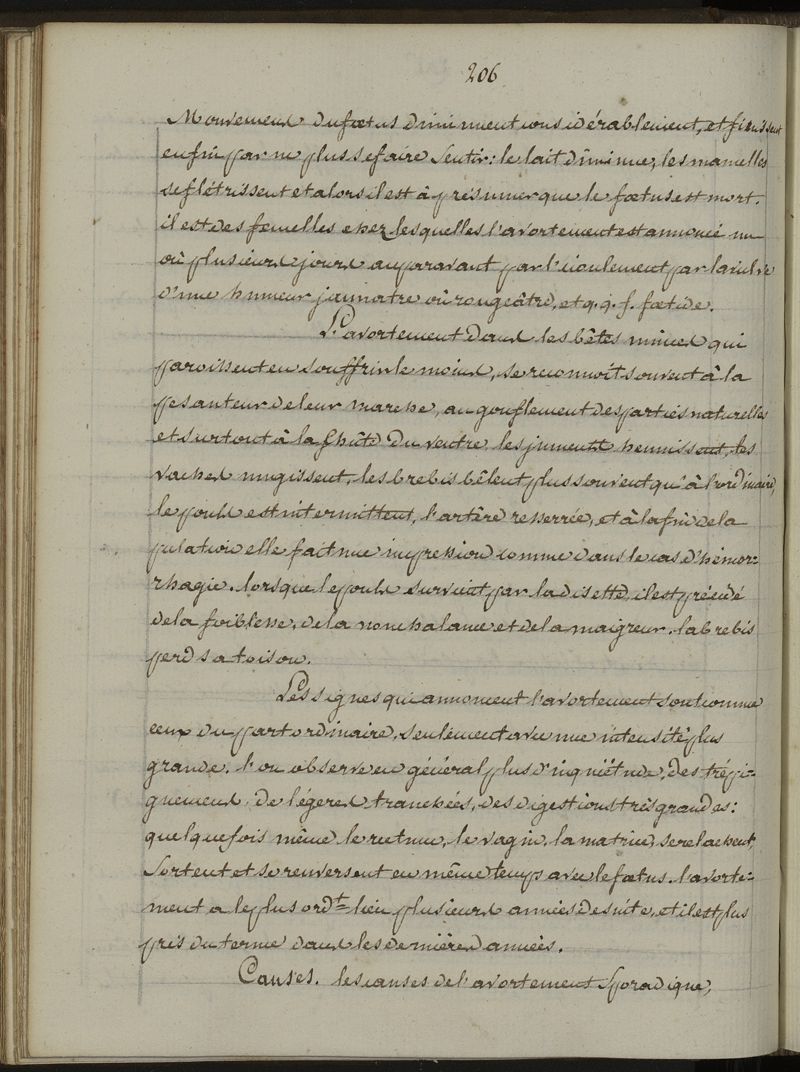 206
Mouvemens du foetus diminuent considérablement, et finissent
enfin par ne plus se faire sentir: le lait diminue, les mamelles
se flétrissent et alors il est à présumer que le foetus est mort.
il est des femelles chez lesquelles l'avortement est annoncé un
où plusieurs jours auparavant par l'écoulement par la vulve
d'une humeur jaunatre où rougeâtre, et q.q.f. foetide.
L'avortement dans les bêtes mêmes qui
paroissent en souffrir le moins, se reconnoit souvent à la
pesanteur de leur marche, au gonflement des parties naturelles
et surtout à la chûte du ventre, les jumens hennissent, les
vaches mugissent, les brebis bêlent plus souvent qu'à l'ordinaire,
le pouls est intermittent, l'artère resserrée, et à la fin de la
pulation elle fait une impression comme dans le cas d'hémor=
rhagie. lorsque le pouls survient par la disette, il est précédé
de la foiblesse, de la nonchalance et de la maigreur. la brebis
perd sa toison.
Les signes qui annoncent l'avortement sont comme
ceux du part ordinaire, seulement avec une intensité plus
grande, l'on observe en général plus d'inquiétude, des trépi=
gnemens, de légeres tranchées, des digestions très grandes:
quelquefois même le rectum, le vagin, la matrice, se relachent,
sortent et se renversent en même temps avec le foetus. l'avorte=
ment a le plus ordt lieu plusieurs années de suite, et il est plus
près du terme dans les dernières années.
Causes. les causes de l'avortement sporadique,